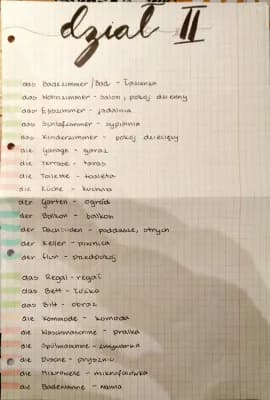 dział II
das Badezimmer/Bad - łazienka
das Wohnzimmer - salon, pokój dzienny
das Esszimmer - jadalnia
das Schlafzimmer - sypialnia
das Kinderzimmer - pokój dziecięcy
die Garage - garaż
die Terrasse - taras
die Toilette - toaleta
die Küche - kuchnia
der Garten - ogród
der Balkon - balkon
der Dachboden - poddasze, strych
der Keller - piwnica
der Flur - przedpokój
das Regal - regał
das Bett - łóżko
das Bild - obraz
die Kommode - komoda
die Waschmaschine - pralka
die Spülmaschine - zmywarka
die Dusche - prysznic
die Mikrowelle - mikrofalówka
die Badewanne - wanna